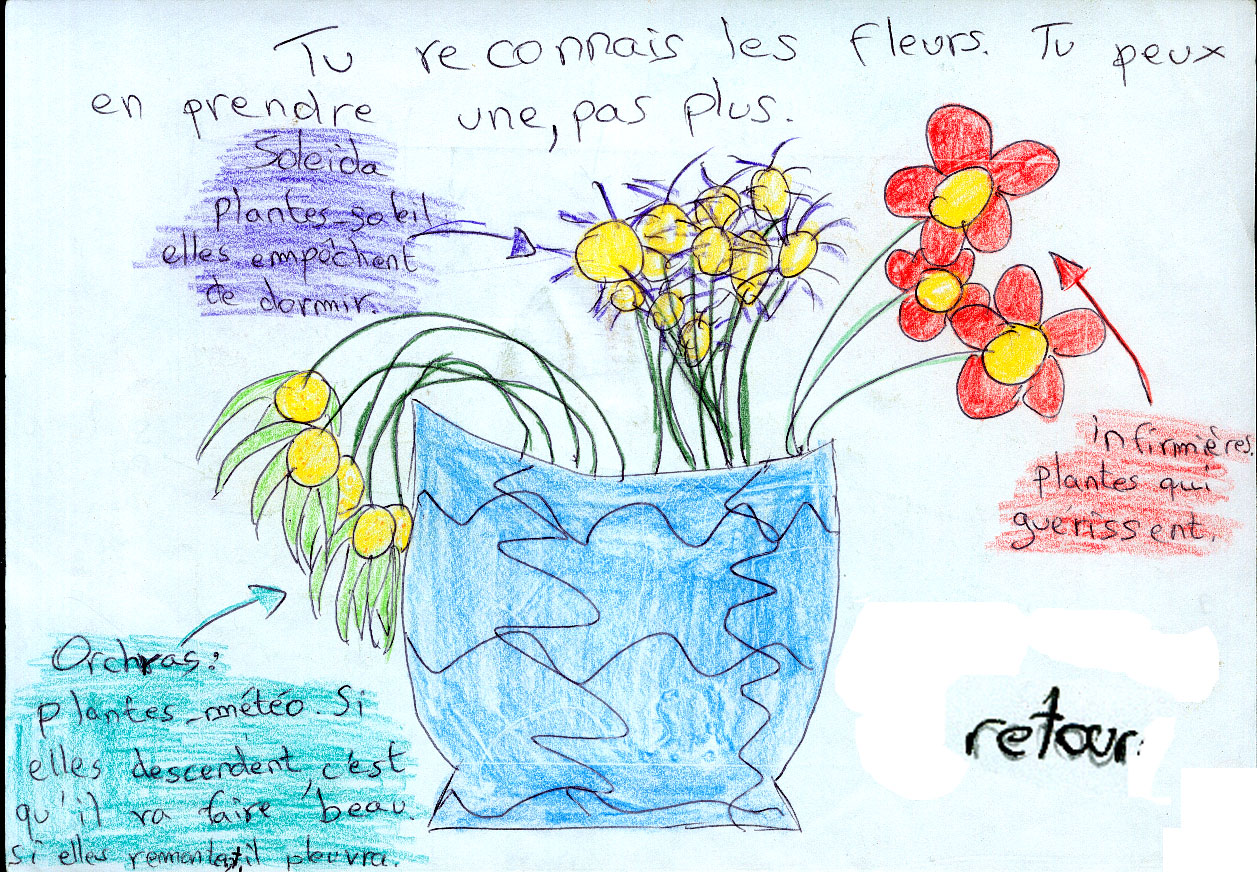 Tu reconnais les fleurs. Tu peux
en prendre une, pas plus.
Soleida
plantes-soleil
elles empêchent
de dormir.
infirmières.
plantes qui
guérissent.
Orchras:
plantes-météo. Si
elles descendent, c'est
qu'il va faire beau.
si elles remontent, il pleuvra.
retour